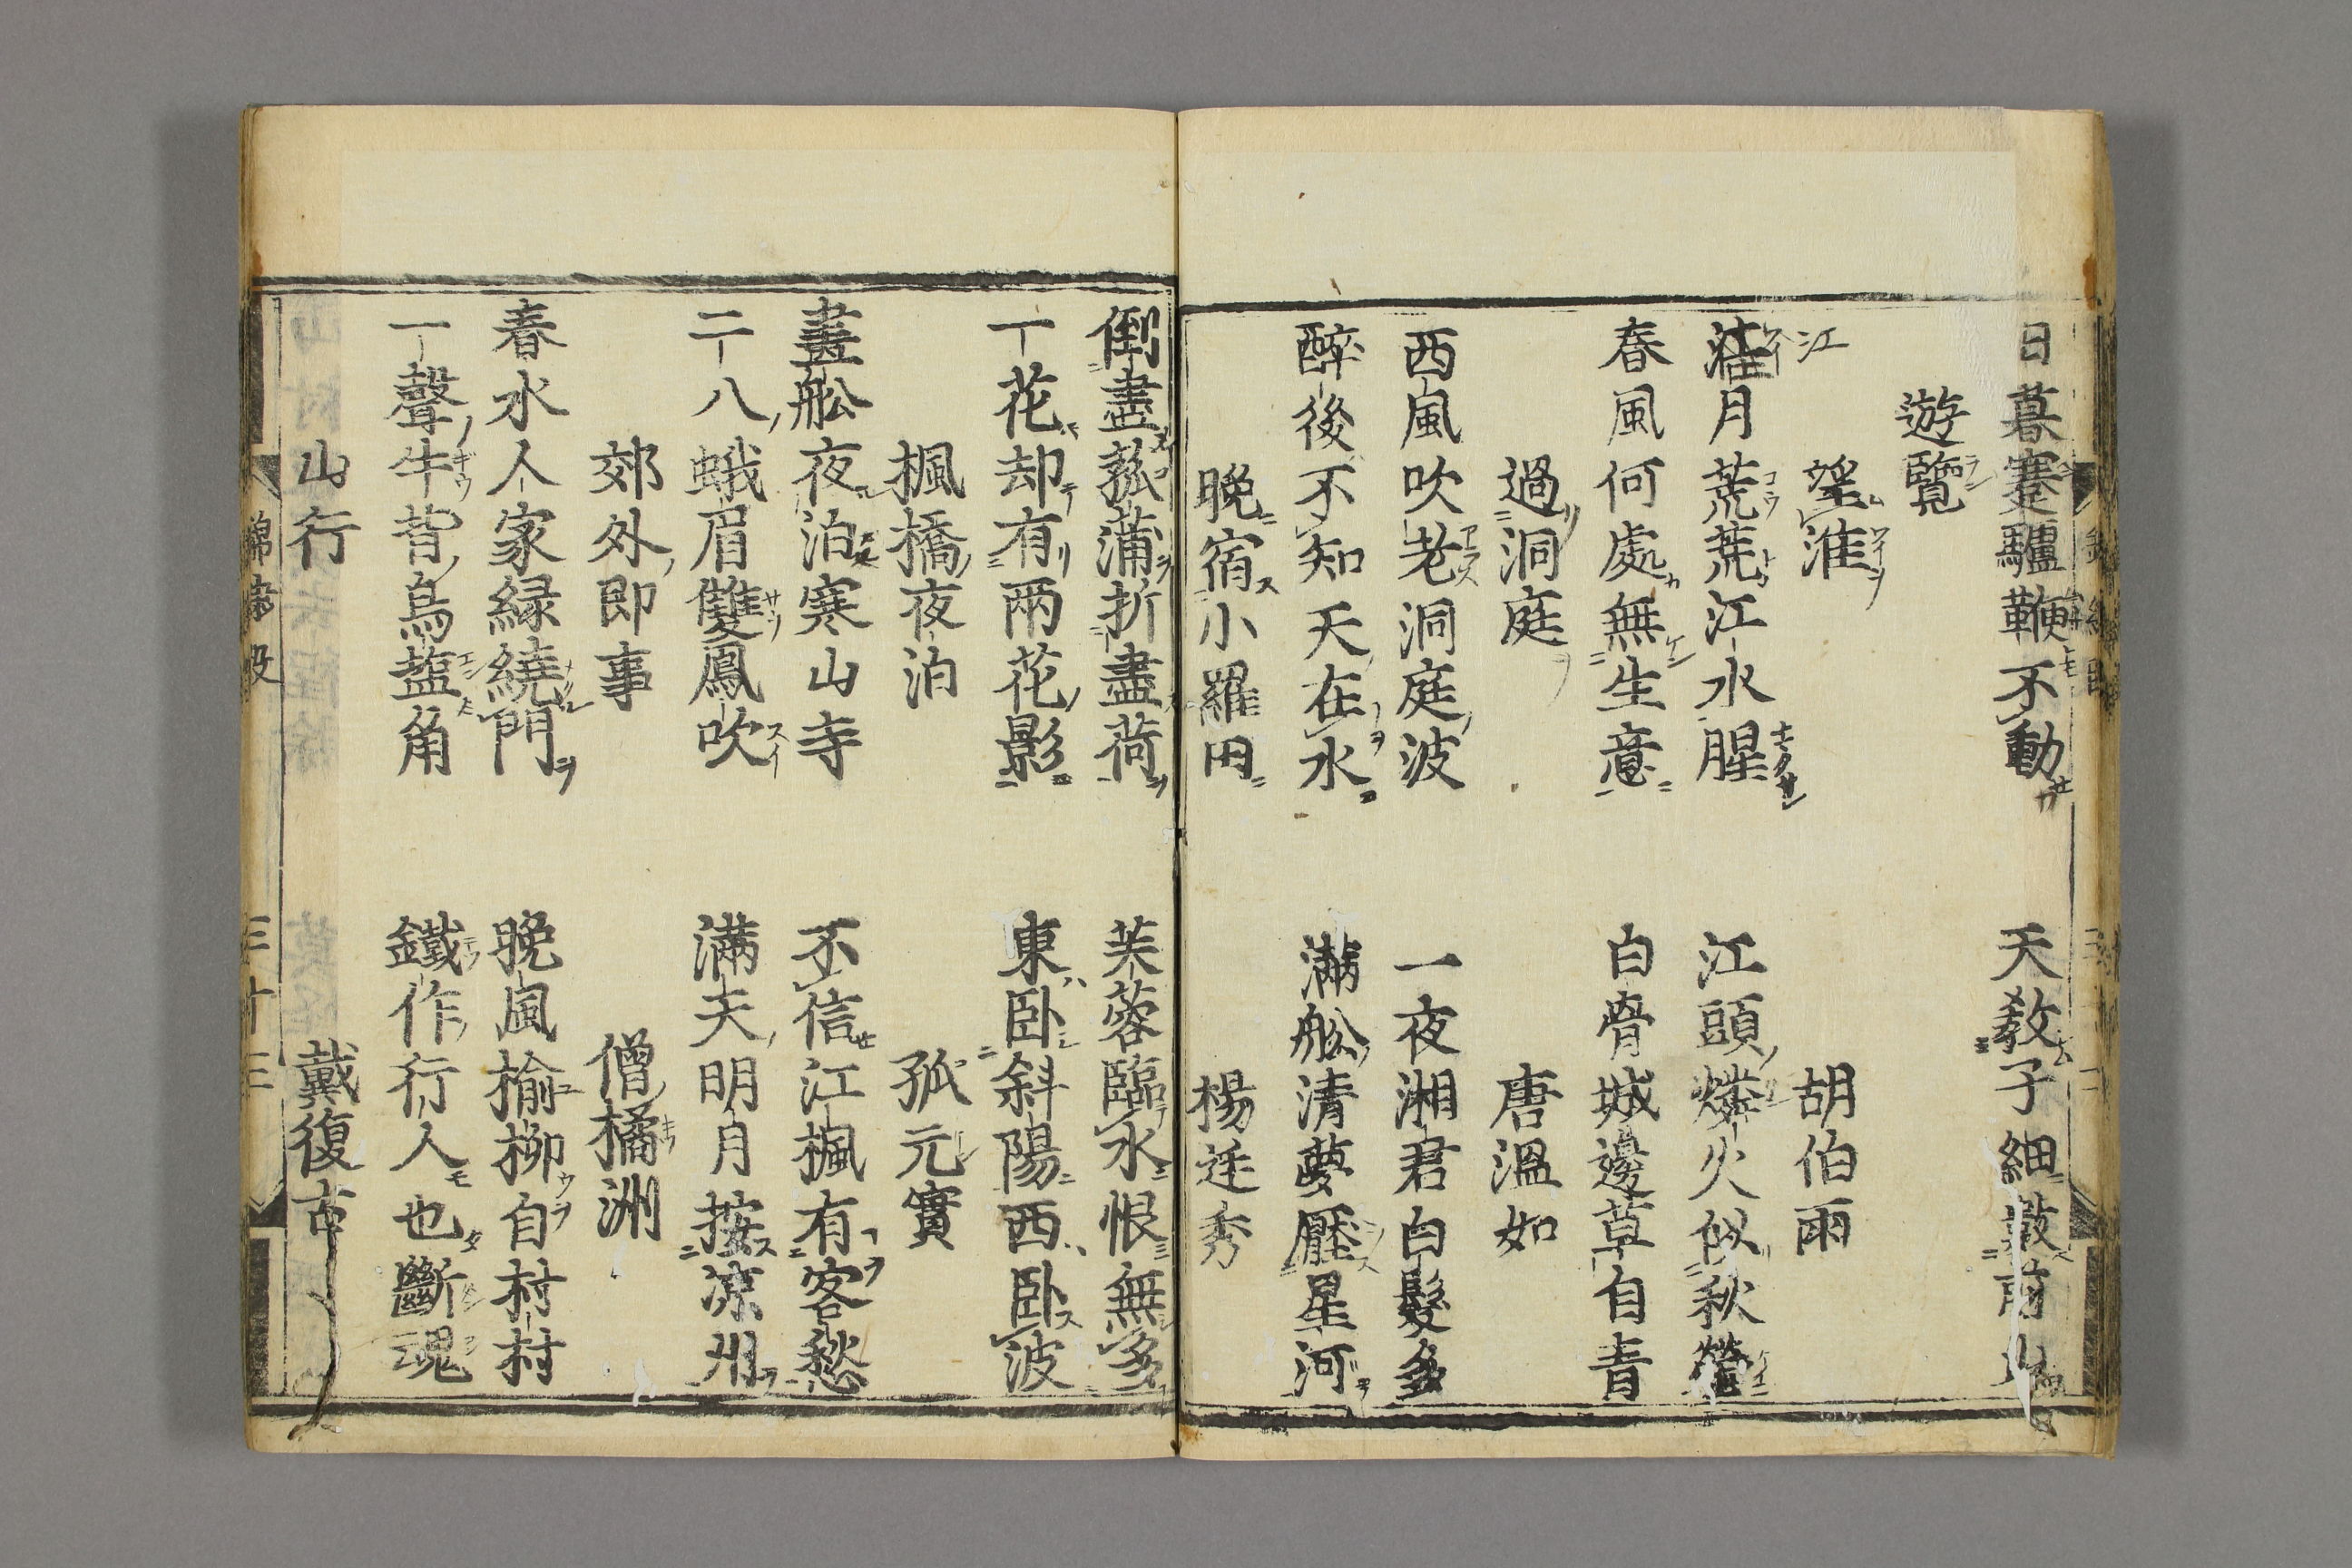 日暮蹇驢鞭不動　天教子細數前山
遊覽
望淮　胡伯雨
江
淮月荒荒江水腥　江頭燐火似秋螢
春風何處無生意　白骨城邊草自青
過洞庭　唐溫如
西風吹老洞庭波　一夜湘君白髮多
醉後不知天在水　滿舩清夢壓星河
晚宿小羅田　楊廷秀
倒盡菰蒲折盡荷　芙蓉臨水恨無多
一花却有兩花影　東卧斜陽西卧波
楓橋夜泊　孤元實
畫舩夜泊寒山寺　不信江楓有客愁
二八蛾眉雙鳳吹　滿天明月按凉州
郊外即事　僧橘洲
春水人家緑繞門　晚風榆柳自村村
一聲牛背烏鹽角　鐵作行人也斷魂
山行　戴復古
三十三